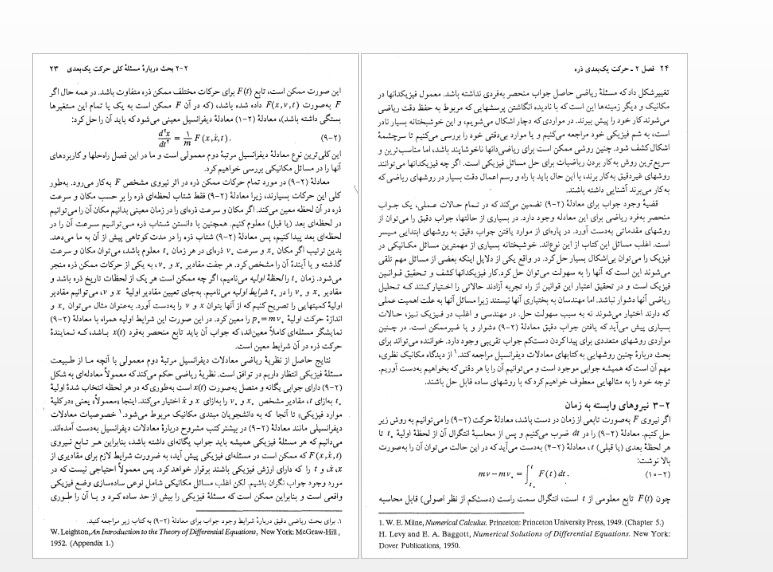 ۲-۲ بحث دربارهٔ مسئلهٔ کلی حرکت یک‌بعدی ۲۳
این صورت ممکن است، تابع F(t) برای حرکات مختلف ممکن ذره متفاوت باشد. در همه حال اگر
F به‌صورت F(x,v,t) داده شده باشد، (که در آن F ممکن است به یک یا تمام این متغیرها
بستگی داشته باشد)، معادلهٔ (۲-۱) معادلهٔ دیفرانسیل معینی می‌شود که باید آن را حل کرد:
d²x/dt² = 1/m F(x,ẋ,t). (۲-۹)
این کلی‌ترین نوع معادلهٔ دیفرانسیل مرتبهٔ دوم معمولی است و ما در این فصل راه‌حلها و کاربردهای
آنها را در مسائل مکانیکی بررسی خواهیم‌کرد.
معادلهٔ (۲-۹) در مورد تمام حرکات ممکن ذره در اثر نیروی مشخص F به‌کار می‌رود. به‌طور
کلی این حرکات بسیارند، زیرا معادلهٔ (۲-۹) فقط شتاب لحظه‌ای ذره را بر حسب مکان و سرعت
ذره در آن لحظه معین می‌کند. اگر مکان و سرعت ذره‌ای را در زمان معینی بدانیم مکان آن را می‌توانیم
در لحظه‌ای بعد (یا قبل) معلوم کنیم. همچنین با دانستن شتاب ذره می‌توانیم سرعت آن را در
لحظه‌ای بعد پیدا کنیم، پس معادلهٔ (۲-۹) شتاب ذره را در مدت کوتاهی پیش از آن به ما می‌دهد.
بدین ترتیب اگر مکان x₀ و سرعت v₀ ذره‌ای در هر زمان t₀ معلوم باشد، می‌توان مکان و سرعت
گذشته و یا آیندهٔ آن را مشخص کرد. هر جفت مقادیر x₀ و v₀، به یکی از حرکات ممکن ذره منجر
می‌شود. زمان t₀ را لحظهٔ اولیه می‌نامیم، اگر چه ممکن است هر یک از لحظات تاریخ ذره باشد و
مقادیر x₀ و v₀ را در t₀ شرایط اولیه می‌نامیم. به‌جای تعیین مقادیر اولیهٔ x و v، می‌توانیم مقادیر
اولیهٔ کمیتهایی را تصریح کنیم که از آنها بتوان x و v را به‌دست آورد. به‌عنوان مثال می‌توان x₀ و
اندازهٔ حرکت اولیهٔ p₀=mv₀ را معین کرد. در این صورت این شرایط اولیه همراه با معادلهٔ (۲-۹)
نمایشگر مسئله‌ای کاملاً معین‌اند، که جواب آن باید تابع منحصر به‌فرد x(t) باشد، که نمایندهٔ
حرکت ذره در آن شرایط معین است.
نتایج حاصل از نظریهٔ ریاضی معادلات دیفرانسیل مرتبهٔ دوم معمولی با آنچه ما از طبیعت
مسئلهٔ فیزیکی انتظار داریم در توافق است. نظریهٔ ریاضی حکم می‌کند که معمولاً معادله‌ای به شکل
(۲-۹) دارای جوابی یگانه و متصل به‌صورت x(t) است به‌طوری‌که در هر لحظه انتخاب شدهٔ اولیهٔ
t₀ به‌ازای t، مقادیر مشخص x₀ و v₀ را به‌ازای x و ẋ اختیار می‌کند. اینجا «معمولاً» یعنی «در کلیهٔ
موارد فیزیکی، تا آنجا که به دانشجویان مبتدی مکانیک مربوط می‌شود.¹ خصوصیات معادلات
دیفرانسیلی مانند معادلهٔ (۲-۹) در بیشتر کتب مشروح دربارهٔ معادلات دیفرانسیل به‌دست آمده‌اند.
می‌دانیم که هر مسئلهٔ فیزیکی همیشه باید جواب یگانه‌ای داشته باشد، بنابراین هر تابع نیروی
F(x,ẋ,t) که ممکن است در مسئله‌ای فیزیکی پیش آید، به ضرورت شرایط لازم برای مقادیری از
x،ẋ و t را که دارای ارزش فیزیکی باشند برقرار خواهد کرد. پس معمولاً احتیاجی نیست که در
مورد وجود جواب نگران باشیم. لکن اغلب مسائل مکانیکی شامل نوعی ساده‌سازی وضع فیزیکی
واقعی است و بنابراین ممکن است که مسئلهٔ فیزیکی را بیش از حد ساده کرد و یا آن را طوری
۱. برای بحث ریاضی دقیق دربارهٔ شرایط وجود جواب برای معادلهٔ (۲-۹) به کتاب زیر مراجعه کنید.
W. Leighton, An Introduction to the Theory of Differential Equations, New York: McGraw-Hill,
1952. (Appendix 1.)
۲۴ فصل ۲ ـ حرکت یک‌بعدی ذره
تغییرشکل داد که مسئلهٔ ریاضی حاصل جواب منحصر به‌فردی نداشته باشد. معمول فیزیکدانها در
مکانیک و دیگر زمینه‌ها این است که با نادیده انگاشتن پرسشهایی که مربوط به حفظ دقت ریاضی
می‌شوند کار خود را پیش ببرند. در مواردی که دچار اشکال می‌شویم، و این خوشبختانه بسیار نادر
است، به شم فیزیکی خود مراجعه می‌کنیم و یا موارد بی‌دقتی خود را بررسی می‌کنیم تا سرچشمهٔ
اشکال کشف شود. چنین روشی ممکن است برای ریاضی‌دانها ناخوشایند باشد، اما مناسب‌ترین و
سریع‌ترین روش به‌کار بردن ریاضیات برای حل مسائل فیزیکی است. اگر چه فیزیکدانها می‌توانند
روشهای غیردقیق به‌کار برند، با این حال باید با راه و رسم اعمال دقت بسیار در روشهای ریاضی که
به‌کار می‌برند آشنایی داشته باشند.
قضیهٔ وجود جواب برای معادلهٔ (۲-۹) تضمین می‌کند که در تمام حالات عملی، یک جواب
منحصر به‌فرد ریاضی برای این معادله وجود دارد. در بسیاری از حالتها، جواب دقیق را می‌توان از
روشهای مقدماتی به‌دست آورد. در پاره‌ای از موارد یافتن جواب دقیق به روشهای ابتدایی میسر
است. اغلب مسائل این کتاب از این نوع‌اند. خوشبختانه بسیاری از مهمترین مسائل مکانیکی در
فیزیک را می‌توان بی‌اشکال بسیار حل کرد. در واقع یکی از دلایل اینکه بعضی از مسائل مهم تلقی
می‌شوند این است که آنها را به سهولت می‌توان حل کرد. کار فیزیکدانها کشف و تحقیق قوانین
فیزیک است و در تحقیق اعتبار این قوانین از راه تجربه آزادند حالاتی را اختیار کنند که تحلیل
ریاضی آنها دشوار نباشد. اما مهندسان به بختیاری آنها نیستند زیرا مسائل آنها به علت اهمیت عملی
که دارند اختیار می‌شوند نه به سبب سهولت حل. در مهندسی و اغلب در فیزیک نیز، حالات
بسیاری پیش می‌آید که یافتن جواب دقیق معادلهٔ (۲-۹) دشوار و یا غیرممکن است. در چنین
مواردی روشهای متعددی برای پیدا کردن دست‌کم جواب تقریبی وجود دارد. خواننده می‌تواند برای
بحث دربارهٔ چنین روشهایی به کتابهای معادلات دیفرانسیل مراجعه کند.¹ از دیدگاه مکانیک نظری،
مهم آن است که همیشه جوابی موجود است و می‌توانیم آن را با هر دقتی که بخواهیم به‌دست آوریم.
توجه خود را به مثالهایی معطوف خواهیم کرد که با روشهای ساده قابل حل باشند.
۲-۳ نیروهای وابسته به زمان
اگر نیروی F به‌صورت تابعی از زمان در دست باشد، معادلهٔ حرکت (۲-۹) را می‌توانیم به روش زیر
حل کنیم. معادلهٔ (۲-۹) را در dt ضرب می‌کنیم و پس از محاسبهٔ انتگرال آن از لحظهٔ اولیهٔ t₀ تا
هر لحظهٔ بعدی (یا قبلی) t، معادلهٔ (۲-۳) به‌دست می‌آید که در این حالت می‌توان آن را به‌صورت
بالا نوشت:
mv−mv₀ = ∫_{t₀}^{t} F(t)dt. (۲-۱۰)
چون F(t) تابع معلومی از t است، انتگرال سمت راست (دستکم از نظر اصولی) قابل محاسبه
1. W. E. Milne, Numerical Calculus. Princeton: Princeton University Press, 1949. (Chapter 5.)
H. Levy and E. A. Baggott, Numerical Solutions of Differential Equations. New York:
Dover Publications, 1950.